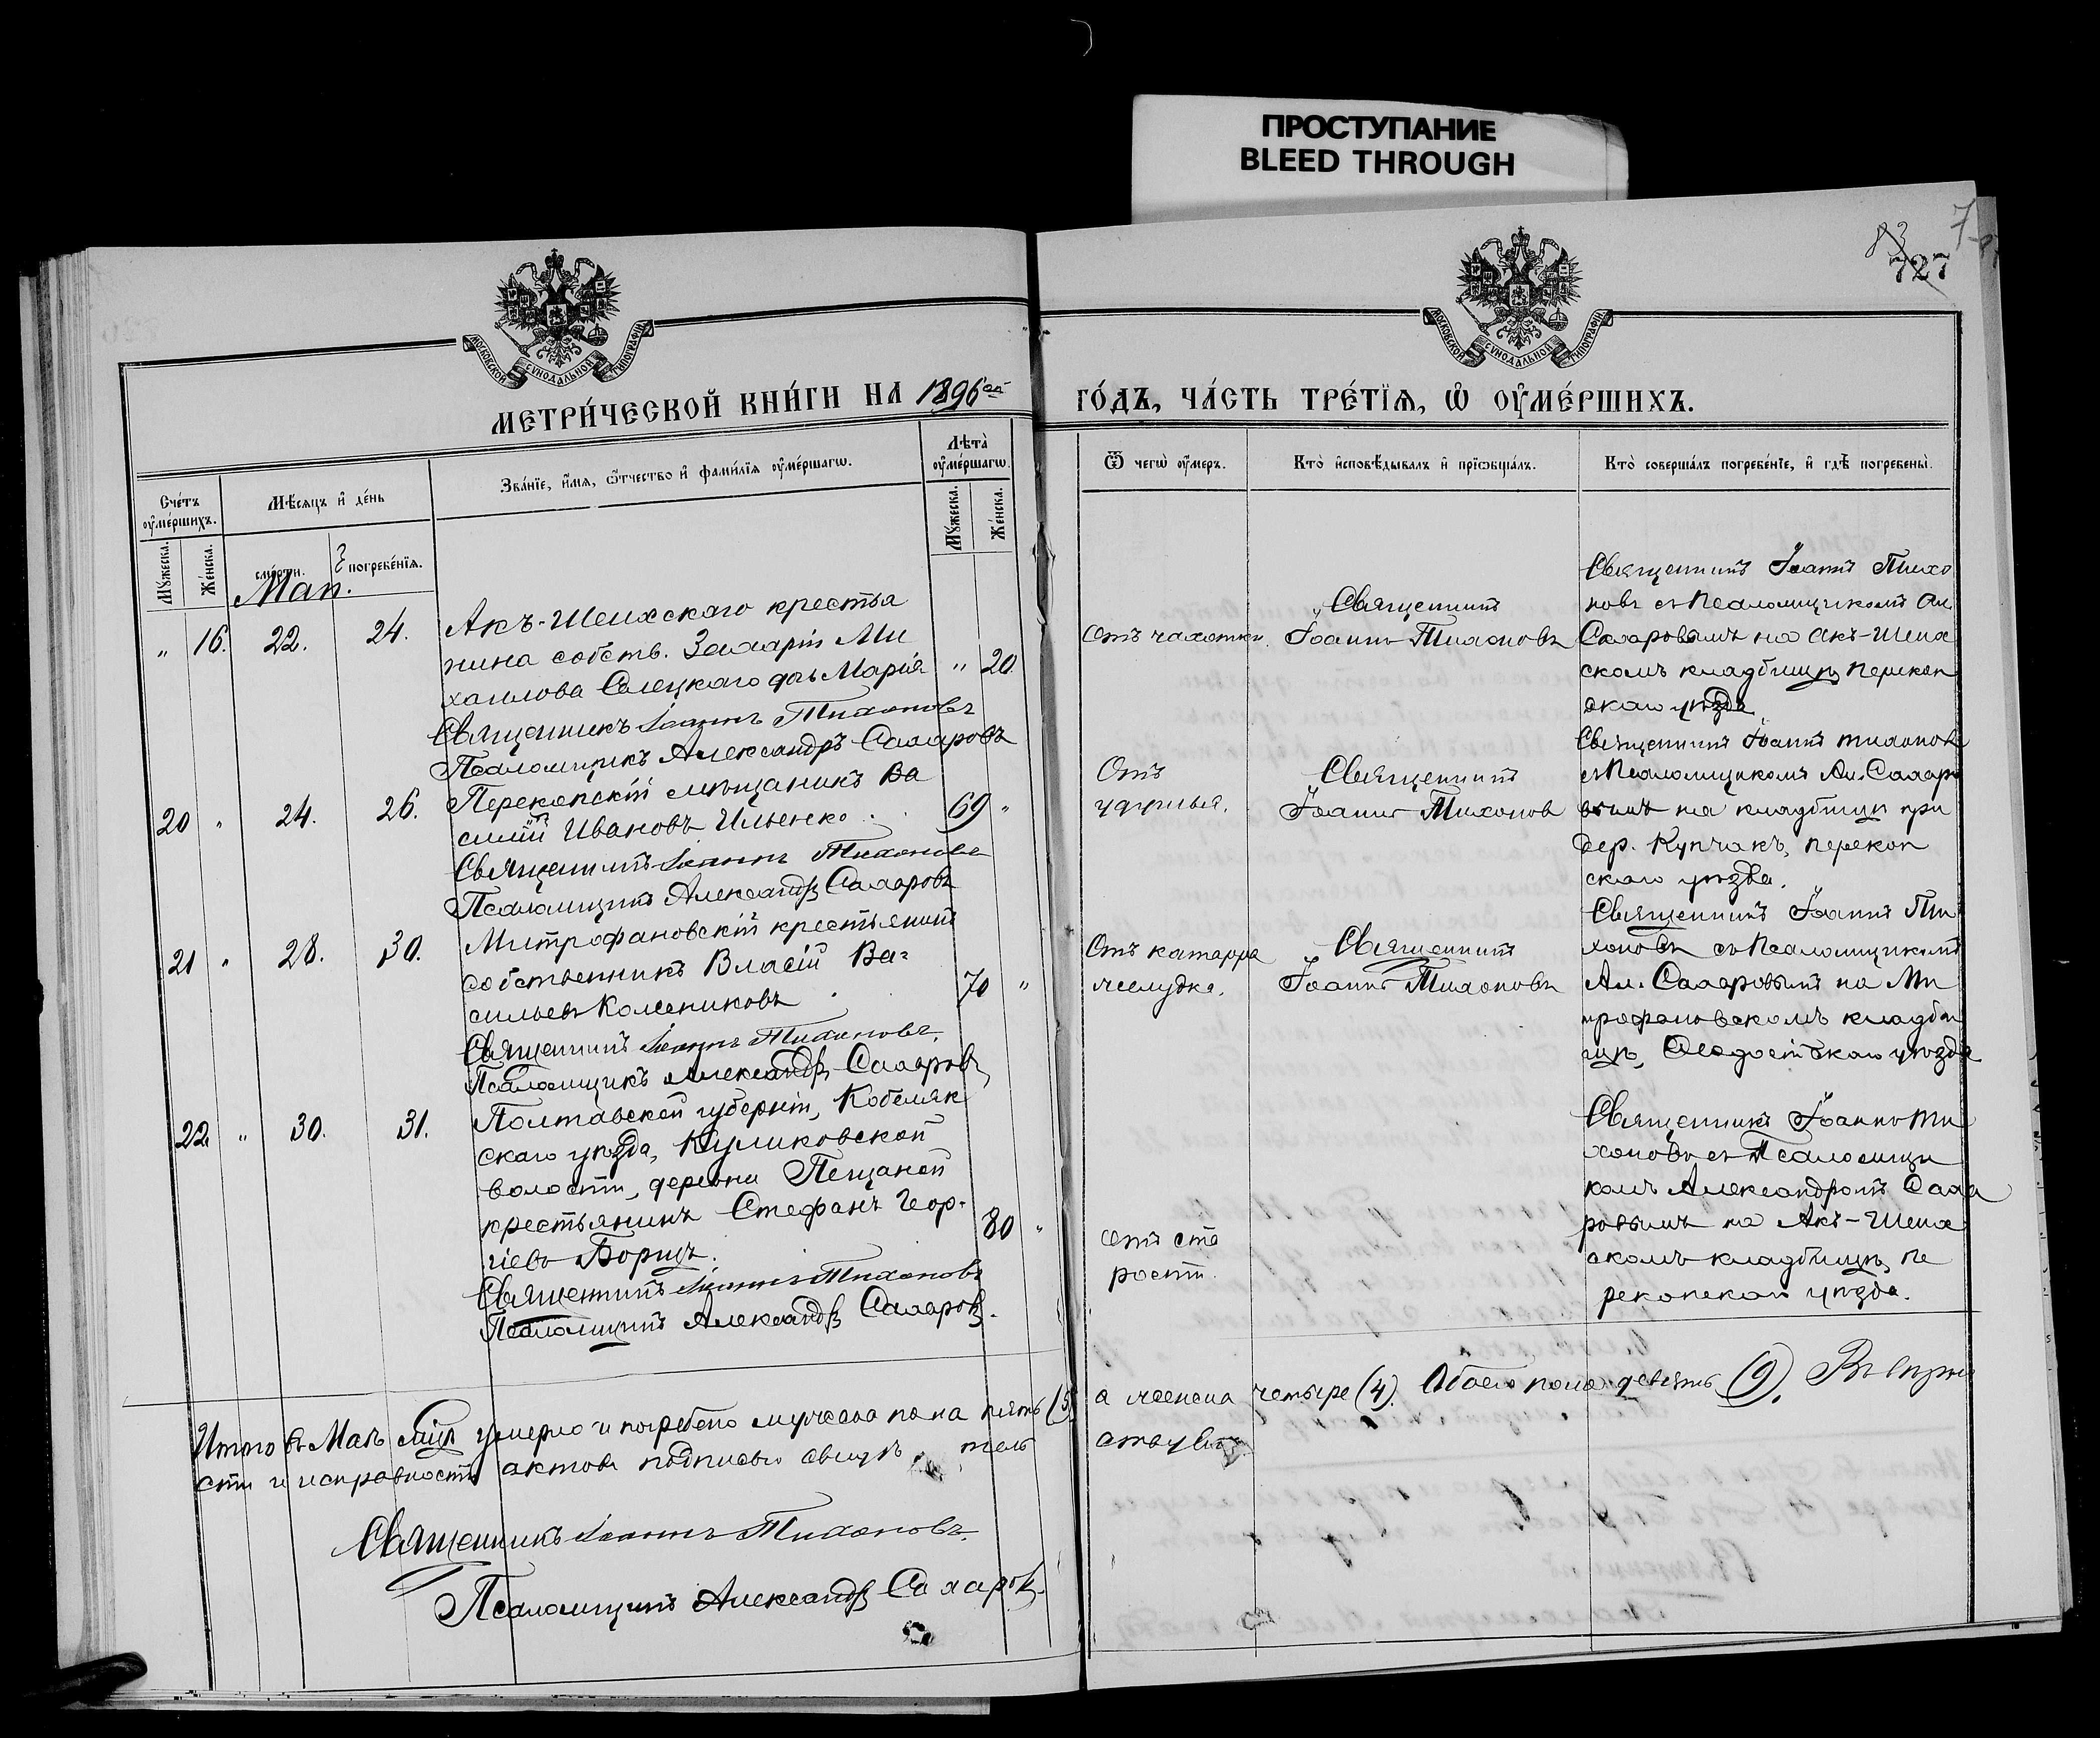 ПРОСТУПАНИЕ
BLEED THROUGH
83
727
МОСКОВСКОЙ СѴНОДАЛЬНОЙ ТИПОГРАФІИ
МОСКОВСКОЙ СѴНОДАЛЬНОЙ ТИПОГРАФІИ
МЕТРИ́ЧЕСКОЙ КНИ́ГИ НА 1896ой
ГО́ДЪ, ЧА́СТЬ ТРЕ́ТІѦ, Ѡ҆ ОУ҆МЕ́РШИХЪ.
Сче́тъ оу҆ме́ршихъ.
Мꙋ́жеска.
Же́нска.
Мѣ́сѧцъ и҆ де́нь
сме́рти.
погребе́нїѧ.
Зва́нїе, и҆́мѧ, ѻ҆́тчество и҆ фами́лїѧ оу҆ме́ршагѡ.
Лѣ́та оу҆ме́ршагѡ.
Мꙋ́жеска.
Же́нска.
Ѿ чегѡ̀ оу҆́меръ.
Кто̀ и҆сповѣ́дывалъ и҆ прїѡбща́лъ.
Кто̀ соверша́лъ погребе́нїе, и҆ гдѣ̀ погребены̀.
Май.
" 16. 22. 24.
Акъ-Шеихскаго крестья
нина собств. Захаріи Ми
хаилова Слецкаго дочь Марія " 20.
Священникъ Іоаннъ Тихоновъ
Псаломщикъ Александръ Сахаровъ
Отъ чахотки.
Священникъ
Іоаннъ Тихоновъ
Священникъ Іоаннъ Тихо
новъ съ Псаломщикомъ Ал.
Сахаровымъ на Акъ-Шеих
скомъ кладбищѣ, Перекоп
скаго уѣзда
20 " 24. 26.
Перекопскій мѣщанинъ Ва
силій Ивановъ Ильенко. 69 "
Священникъ Іоаннъ Тихоновъ
Псаломщикъ Александръ Сахаровъ
Отъ
удушья.
Священникъ
Іоаннъ Тихонов
Священникъ Іоаннъ Тихонов
съ Псаломщикомъ Ал. Сахаро
вымъ на кладбищѣ при
дер. Купчакъ, Перекоп
скаго уѣзда.
21 " 28. 30.
Митрофановскій крестьянинъ
собственникъ Власій Ва-
сильевъ Колесниковъ 70 "
Священникъ Іоаннъ Тихоновъ.
Псаломщикъ Александръ Сахаровъ
Отъ катарра
желудка.
Священникъ
Іоаннъ Тихоновъ
Священникъ Іоаннъ Ти
хоновъ съ Псаломщикомъ
Ал. Сахаровымъ на Ми
трофановскомъ кладби
щѣ, Ѳеодосійскаго уѣзда
22 " 30. 31.
Полтавской губерніи, Кобеляк
скаго уѣзда, Куликовской
волости, деревни Пещаной
крестьянинъ Стефанъ Геор-
гіевъ Борищ. 80 "
Священникъ Іоаннъ Тихоновъ
Псаломщикъ Александръ Сахаровъ.
Отъ ста
рости.
Священникъ Іоаннъ Ти
хоновъ съ Псаломщи
комъ Александромъ Саха
ровымъ на Акъ-Шеих
скомъ кладбищѣ, Пе
рекопскаго уѣзда.
Итого въ Маѣ мѣсяцѣ умерло и погребено мужеска пола пять (5)
а женска четыре (4). Обоего пола девять (9). Въ вѣрно
сти и исправности актовъ подписью свидѣтель
ствуемъ
Священникъ Іоаннъ Тихоновъ.
Псаломщикъ Александръ Сахаровъ.